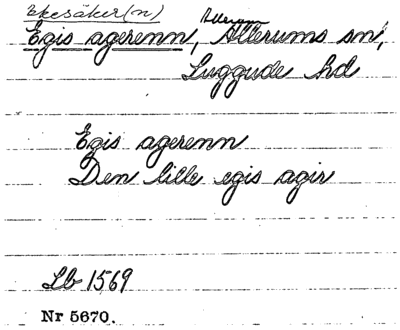 Ekesåker(n)
Allerum
Egis agerenn, Allerums sn,
Luggude hd
Egis agerenn
Den lille egis agir
Lb 1569
Nr 5670.